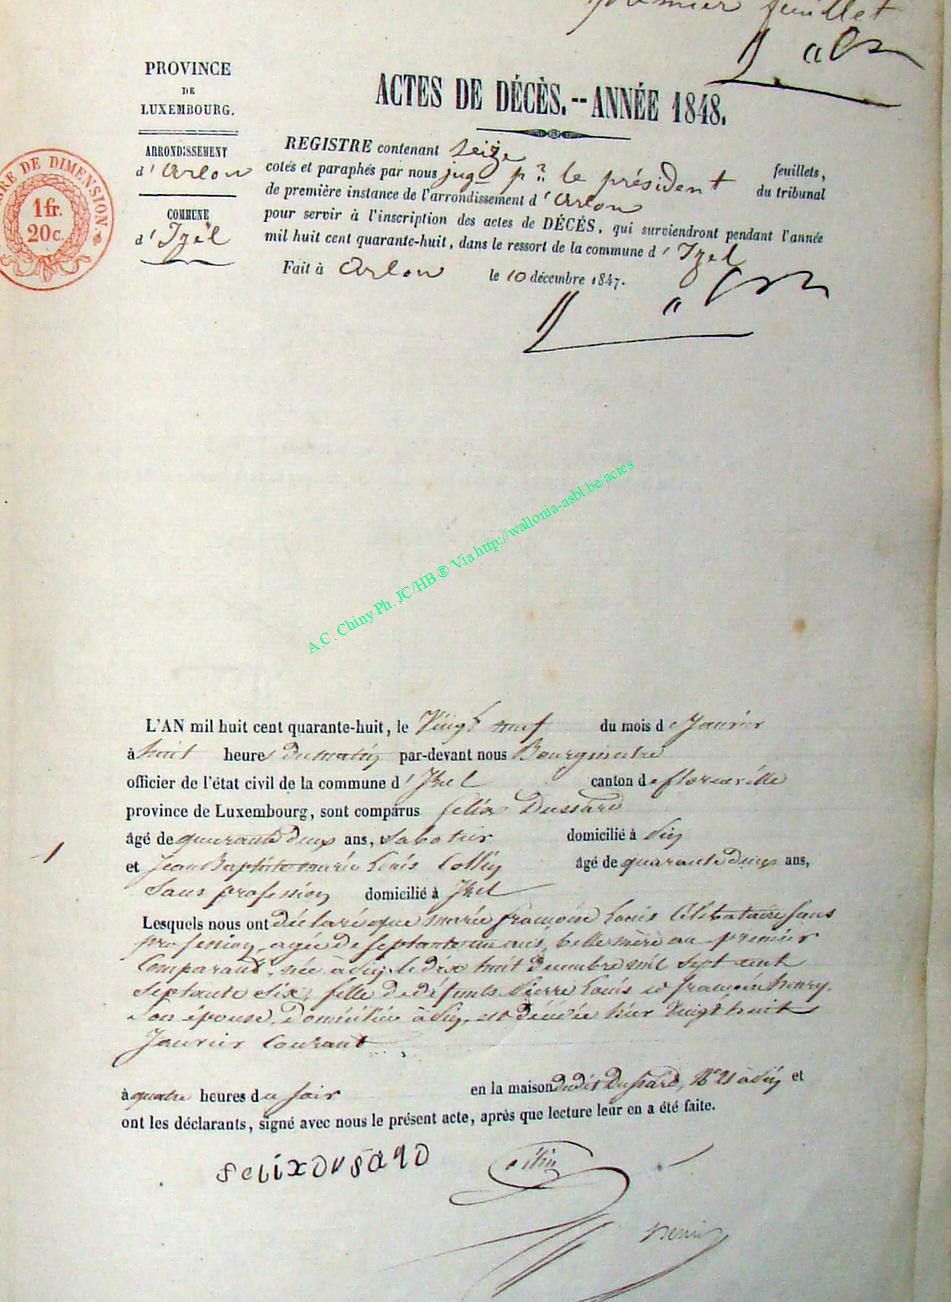 premier feuillet
PROVINCE
DE
LUXEMBOURG.
ARRONDISSEMENT
d'Arlon
COMMUNE
d'Izel
RE DE DIMENSION.
1 fr.
20 c.
ACTES DE DÉCÈS.--ANNÉE 1848.
REGISTRE contenant seize feuillets,
cotés et paraphés par nous juge pr. le président du tribunal
de première instance de l'arrondissement d'Arlon
pour servir à l'inscription des actes de DÉCÈS, qui surviendront pendant l'année
mil huit cent quarante-huit, dans le ressort de la commune d'Izel
Fait à Arlon le 10 décembre 1847.
A.C. Chiny Ph. JC/HB ® Via http://wallonia-asbl.be/actes
L'AN mil huit cent quarante-huit, le Vingt neuf du mois de Janvier
à huit heures du matin par-devant nous Bourgmestre
officier de l'état civil de la commune d'Izel canton de florenville
province de Luxembourg, sont comparus felix Dussard
âgé de quarante deux ans, Sabotier domicilié à
1
et Jean Baptiste marie Louis Collin âgé de quarante deux ans,
Sans profession domicilié à Izel
Lesquels nous ont déclaré que marie françoise Louis Célibataire sans
profession, agée de septante un ans, belle mère au premier
Comparant, née à le dix huit decembre mil sept cent
septante six, fille de defunts Pierre Louis et françoise henry,
son épouse, domiciliée à est décédée hier Vingt huit
Janvier Courant
à quatre heures du soir en la maison dudit Dussard, à et
ont les déclarants, signé avec nous le présent acte, après que lecture leur en a été faite.
felixDusard
Collin